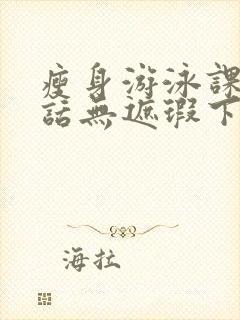 瘦身游泳課
話無遮瑕下
海拉